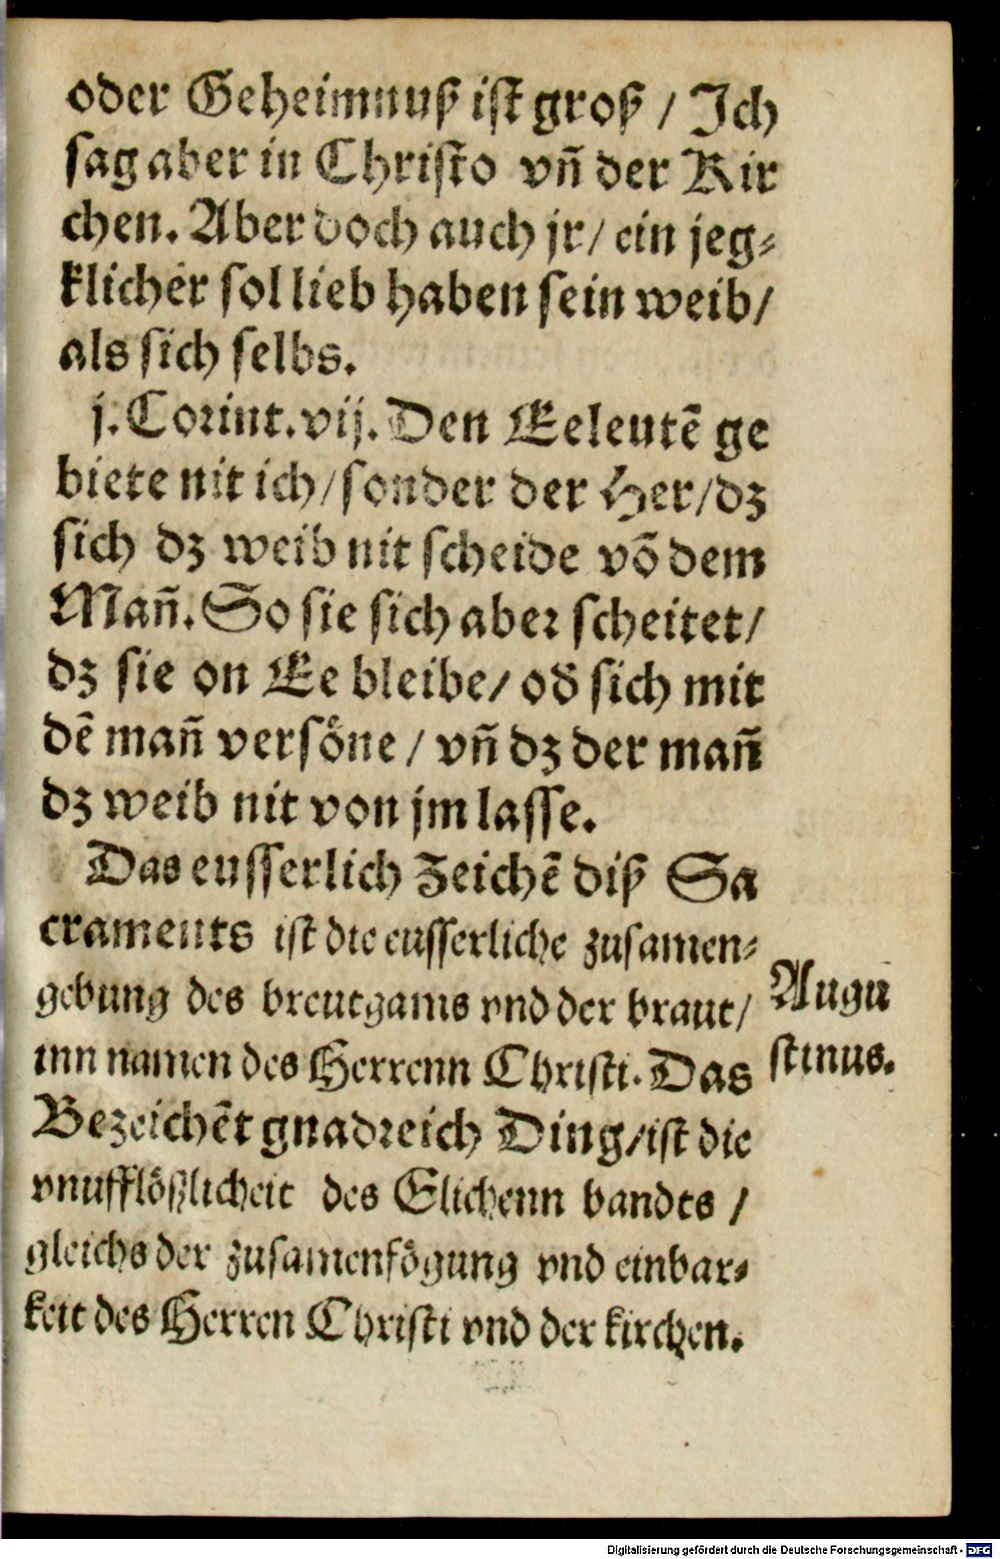 oder Geheimnuß ist groß / Ich
sag aber in Christo vñ der Kir
chen. Aber doch auch jr / ein jeg⸗
klicher sol lieb haben sein weib /
als sich selbs.
j. Corint. vij. Den Eeleutẽ ge
biete nit ich / sonder der Her / dz
sich dz weib nit scheide võ dem
Mañ. So sie sich aber scheitet /
dz sie on Ee bleibe / oď sich mit
dẽ mañ versöne / vñ dz der mañ
dz weib nit von jm lasse.
Das eusserlich Zeichẽ diß Sa
craments ist die eusserliche zusamen⸗
gebung des breutgams vnd der braut /
inn namen des Herrenn Christi. Das
Bezeichẽt gnadreich Ding / ist die
vnufflößlicheit des Elichenn bandts /
gleichs der zusamenfögung vnd einbar⸗
keit des Herren Christi vnd der kirchen.
Augu
stinus.
Digitalisierung gefördert durch die Deutsche Forschungsgemeinschaft - DFG